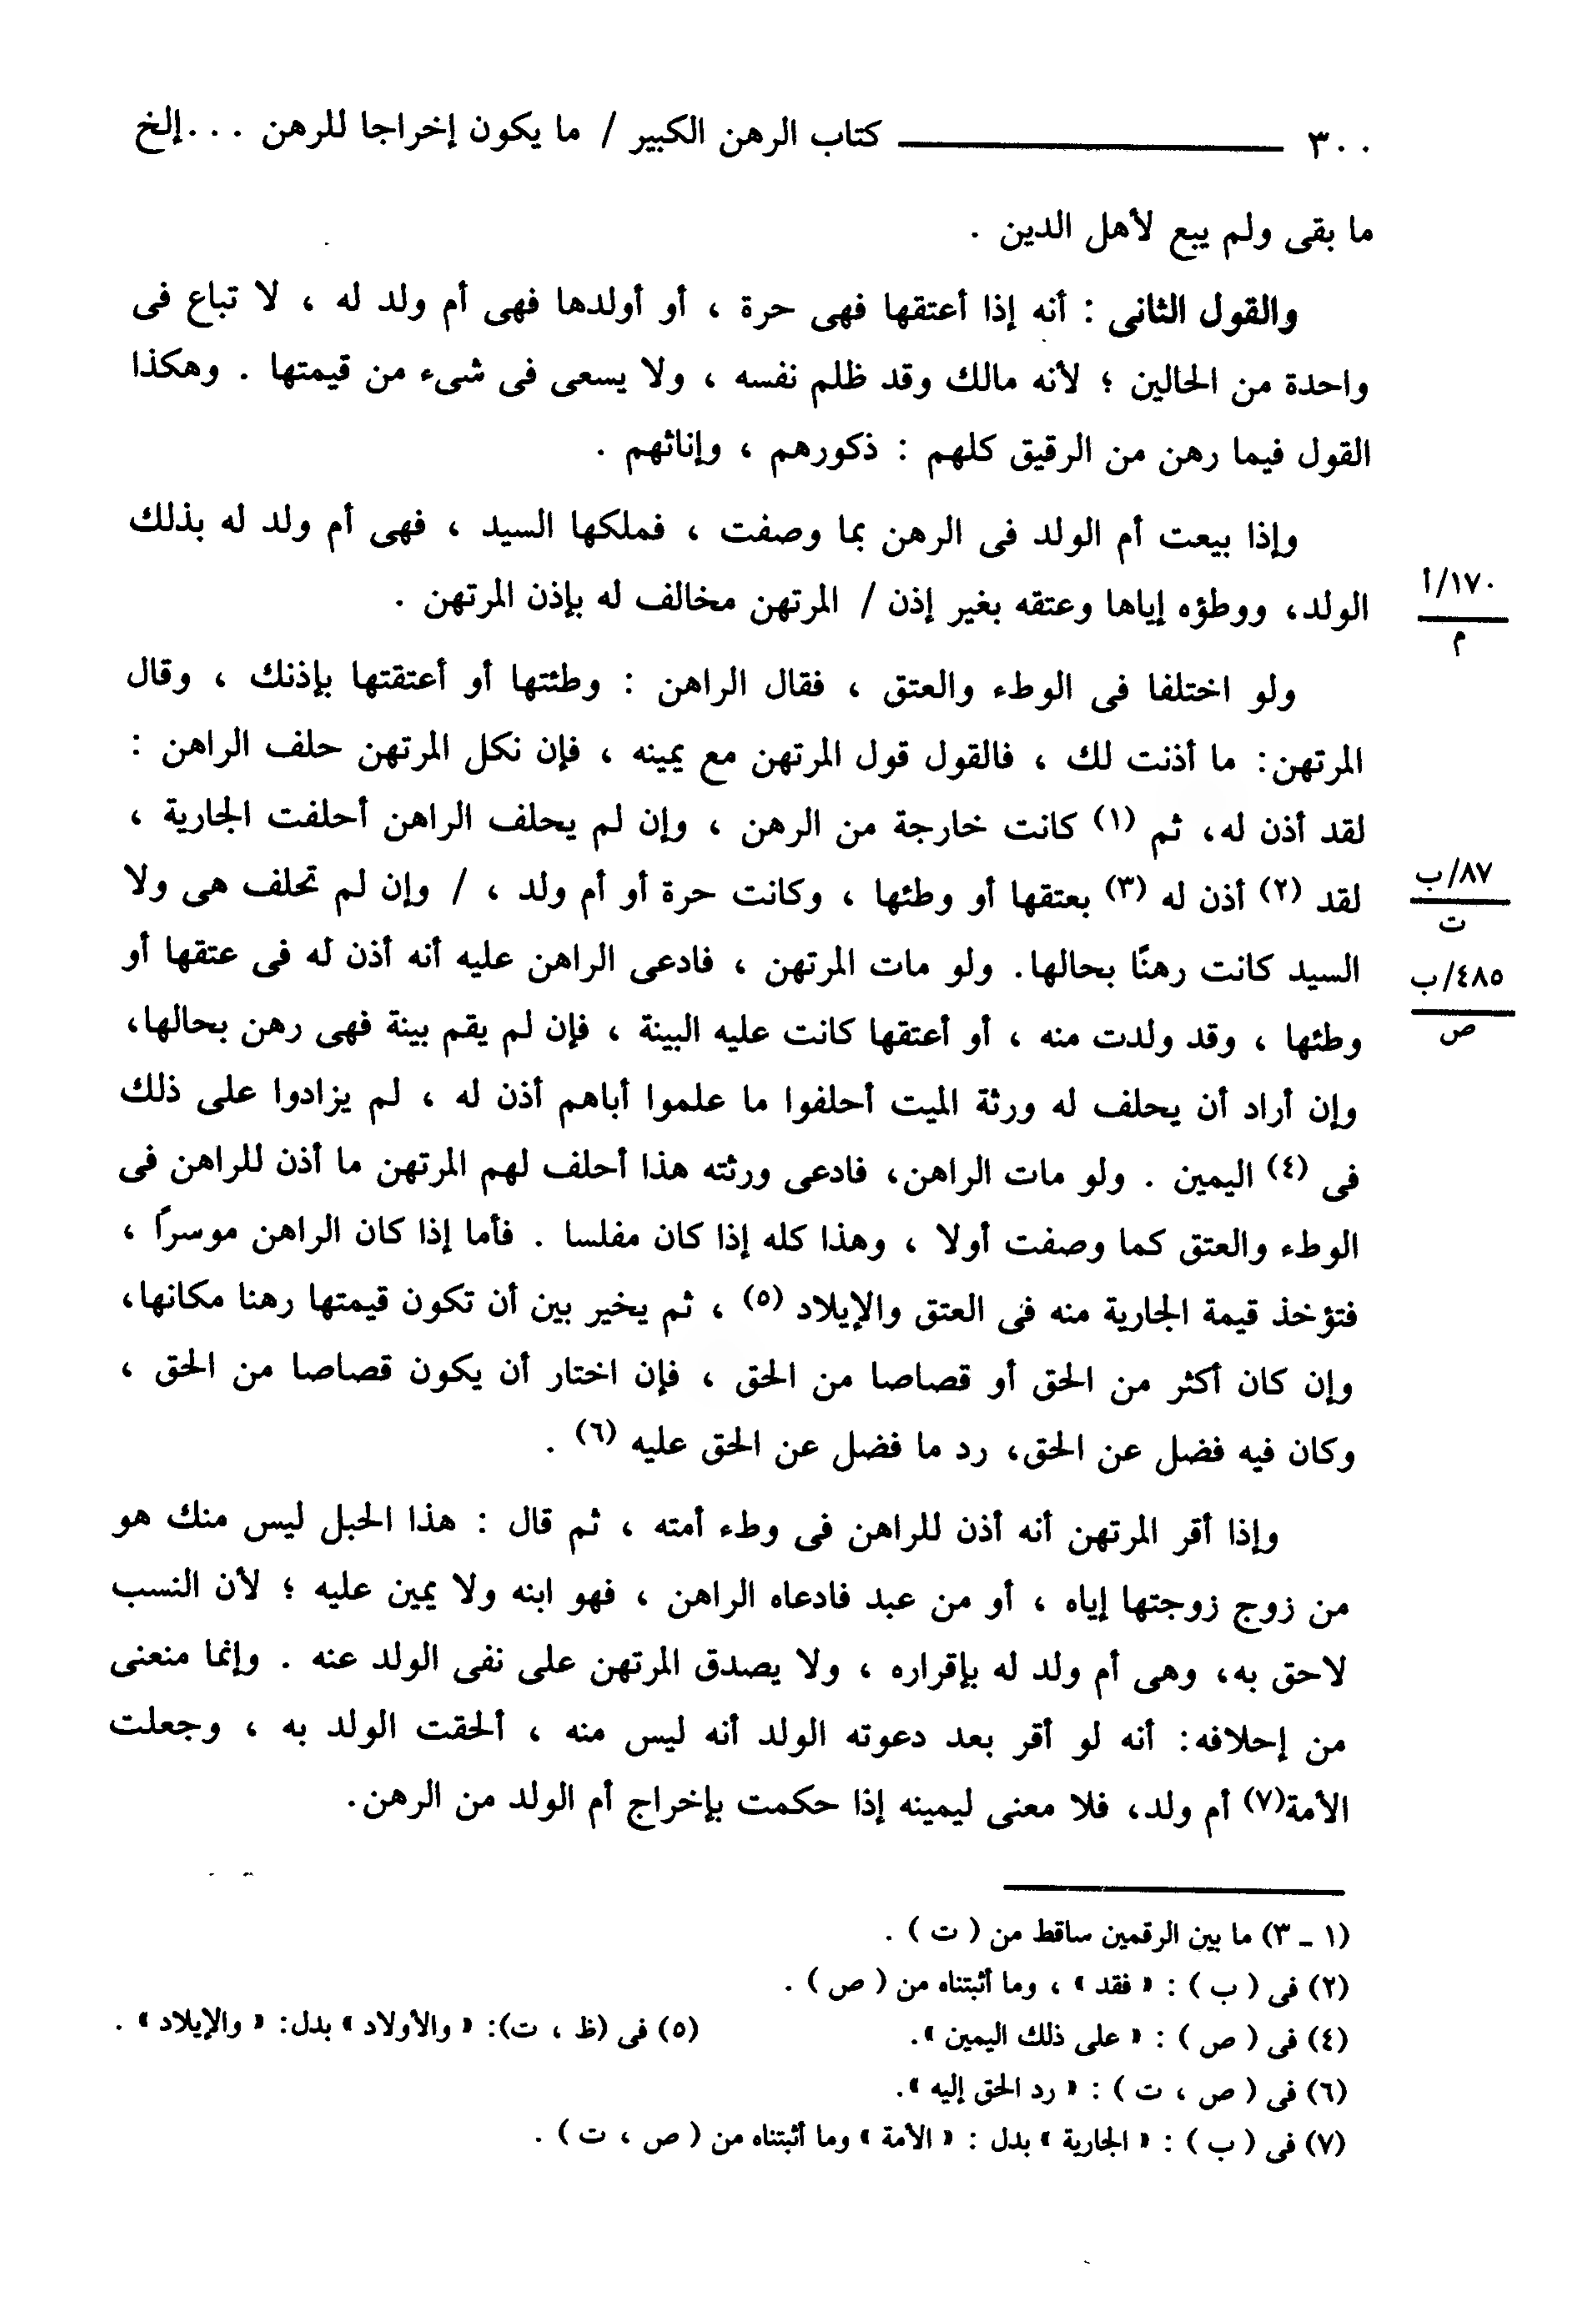 ٣٠٠ ــــــــــــــ كتاب الرهن الكبير / ما يكون إخراجا للرهن . . . إلخ
ما بقى ولم يبع لأهل الدين .
والقول الثانى : أنه إذا أعتقها فهى حرة ، أو أولدها فهى أم ولد له ، لا تباع فى
واحدة من الحالين ؛ لأنه مالك وقد ظلم نفسه ، ولا يسعى فى شىء من قيمتها . وهكذا
القول فيما رهن من الرقيق كلهم : ذكورهم ، وإناثهم .
وإذا بيعت أم الولد فى الرهن بما وصفت ، فملكها السيد ، فهى أم ولد له بذلك
الولد، ووطؤه إياها وعتقه بغير إذن / المرتهن مخالف له بإذن المرتهن .
١٧٠/أ
م
ولو اختلفا فى الوطء والعتق ، فقال الراهن : وطئتها أو أعتقتها بإذنك ، وقال
المرتهن: ما أذنت لك ، فالقول قول المرتهن مع يمينه ، فإن نكل المرتهن حلف الراهن :
لقد أذن له، ثم (١) كانت خارجة من الرهن ، وإن لم يحلف الراهن أحلفت الجارية ،
لقد (٢) أذن له (٣) بعتقها أو وطئها ، وكانت حرة أو أم ولد ، / وإن لم تحلف هى ولا
٨٧/ب
ت
السيد كانت رهنًا بحالها. ولو مات المرتهن ، فادعى الراهن عليه أنه أذن له فى عتقها أو
٤٨٥/ب
ص
وطئها ، وقد ولدت منه ، أو أعتقها كانت عليه البينة ، فإن لم يقم بينة فهى رهن بحالها،
وإن أراد أن يحلف له ورثة الميت أحلفوا ما علموا أباهم أذن له ، لم يزادوا على ذلك
فى (٤) اليمين . ولو مات الراهن، فادعى ورثته هذا أحلف لهم المرتهن ما أذن للراهن فى
الوطء والعتق كما وصفت أولا ، وهذا كله إذا كان مفلسا . فأما إذا كان الراهن موسرًا ،
فتؤخذ قيمة الجارية منه فى العتق والإيلاد (٥) ، ثم يخير بين أن تكون قيمتها رهنا مكانها،
وإن كان أكثر من الحق أو قصاصا من الحق ، فإن اختار أن يكون قصاصا من الحق ،
وكان فيه فضل عن الحق، رد ما فضل عن الحق عليه (٦) .
وإذا أقر المرتهن أنه أذن للراهن فى وطء أمته ، ثم قال : هذا الحبل ليس منك هو
من زوج زوجتها إياه ، أو من عبد فادعاه الراهن ، فهو ابنه ولا يمين عليه ؛ لأن النسب
لاحق به، وهى أم ولد له بإقراره ، ولا يصدق المرتهن على نفى الولد عنه . وإنما منعنى
من إحلافه: أنه لو أقر بعد دعوته الولد أنه ليس منه ، ألحقت الولد به ، وجعلت
الأمة(٧) أم ولد، فلا معنى ليمينه إذا حكمت بإخراج أم الولد من الرهن.
(١ ـ ٣) ما بين الرقمين ساقط من ( ت ) .
(٢) فى ( ب ) : « فقد » ، وما أثبتناه من ( ص ) .
(٤) فى ( ص ) : « على ذلك اليمين ». (٥) فى (ظ ، ت): « والأولاد » بدل: « والإيلاد » .
(٦) فى ( ص ، ت ) : « رد الحق إليه ».
(٧) فى ( ب ) : « الجارية » بدل : « الأمة » وما أثبتناه من ( ص ، ت ) .